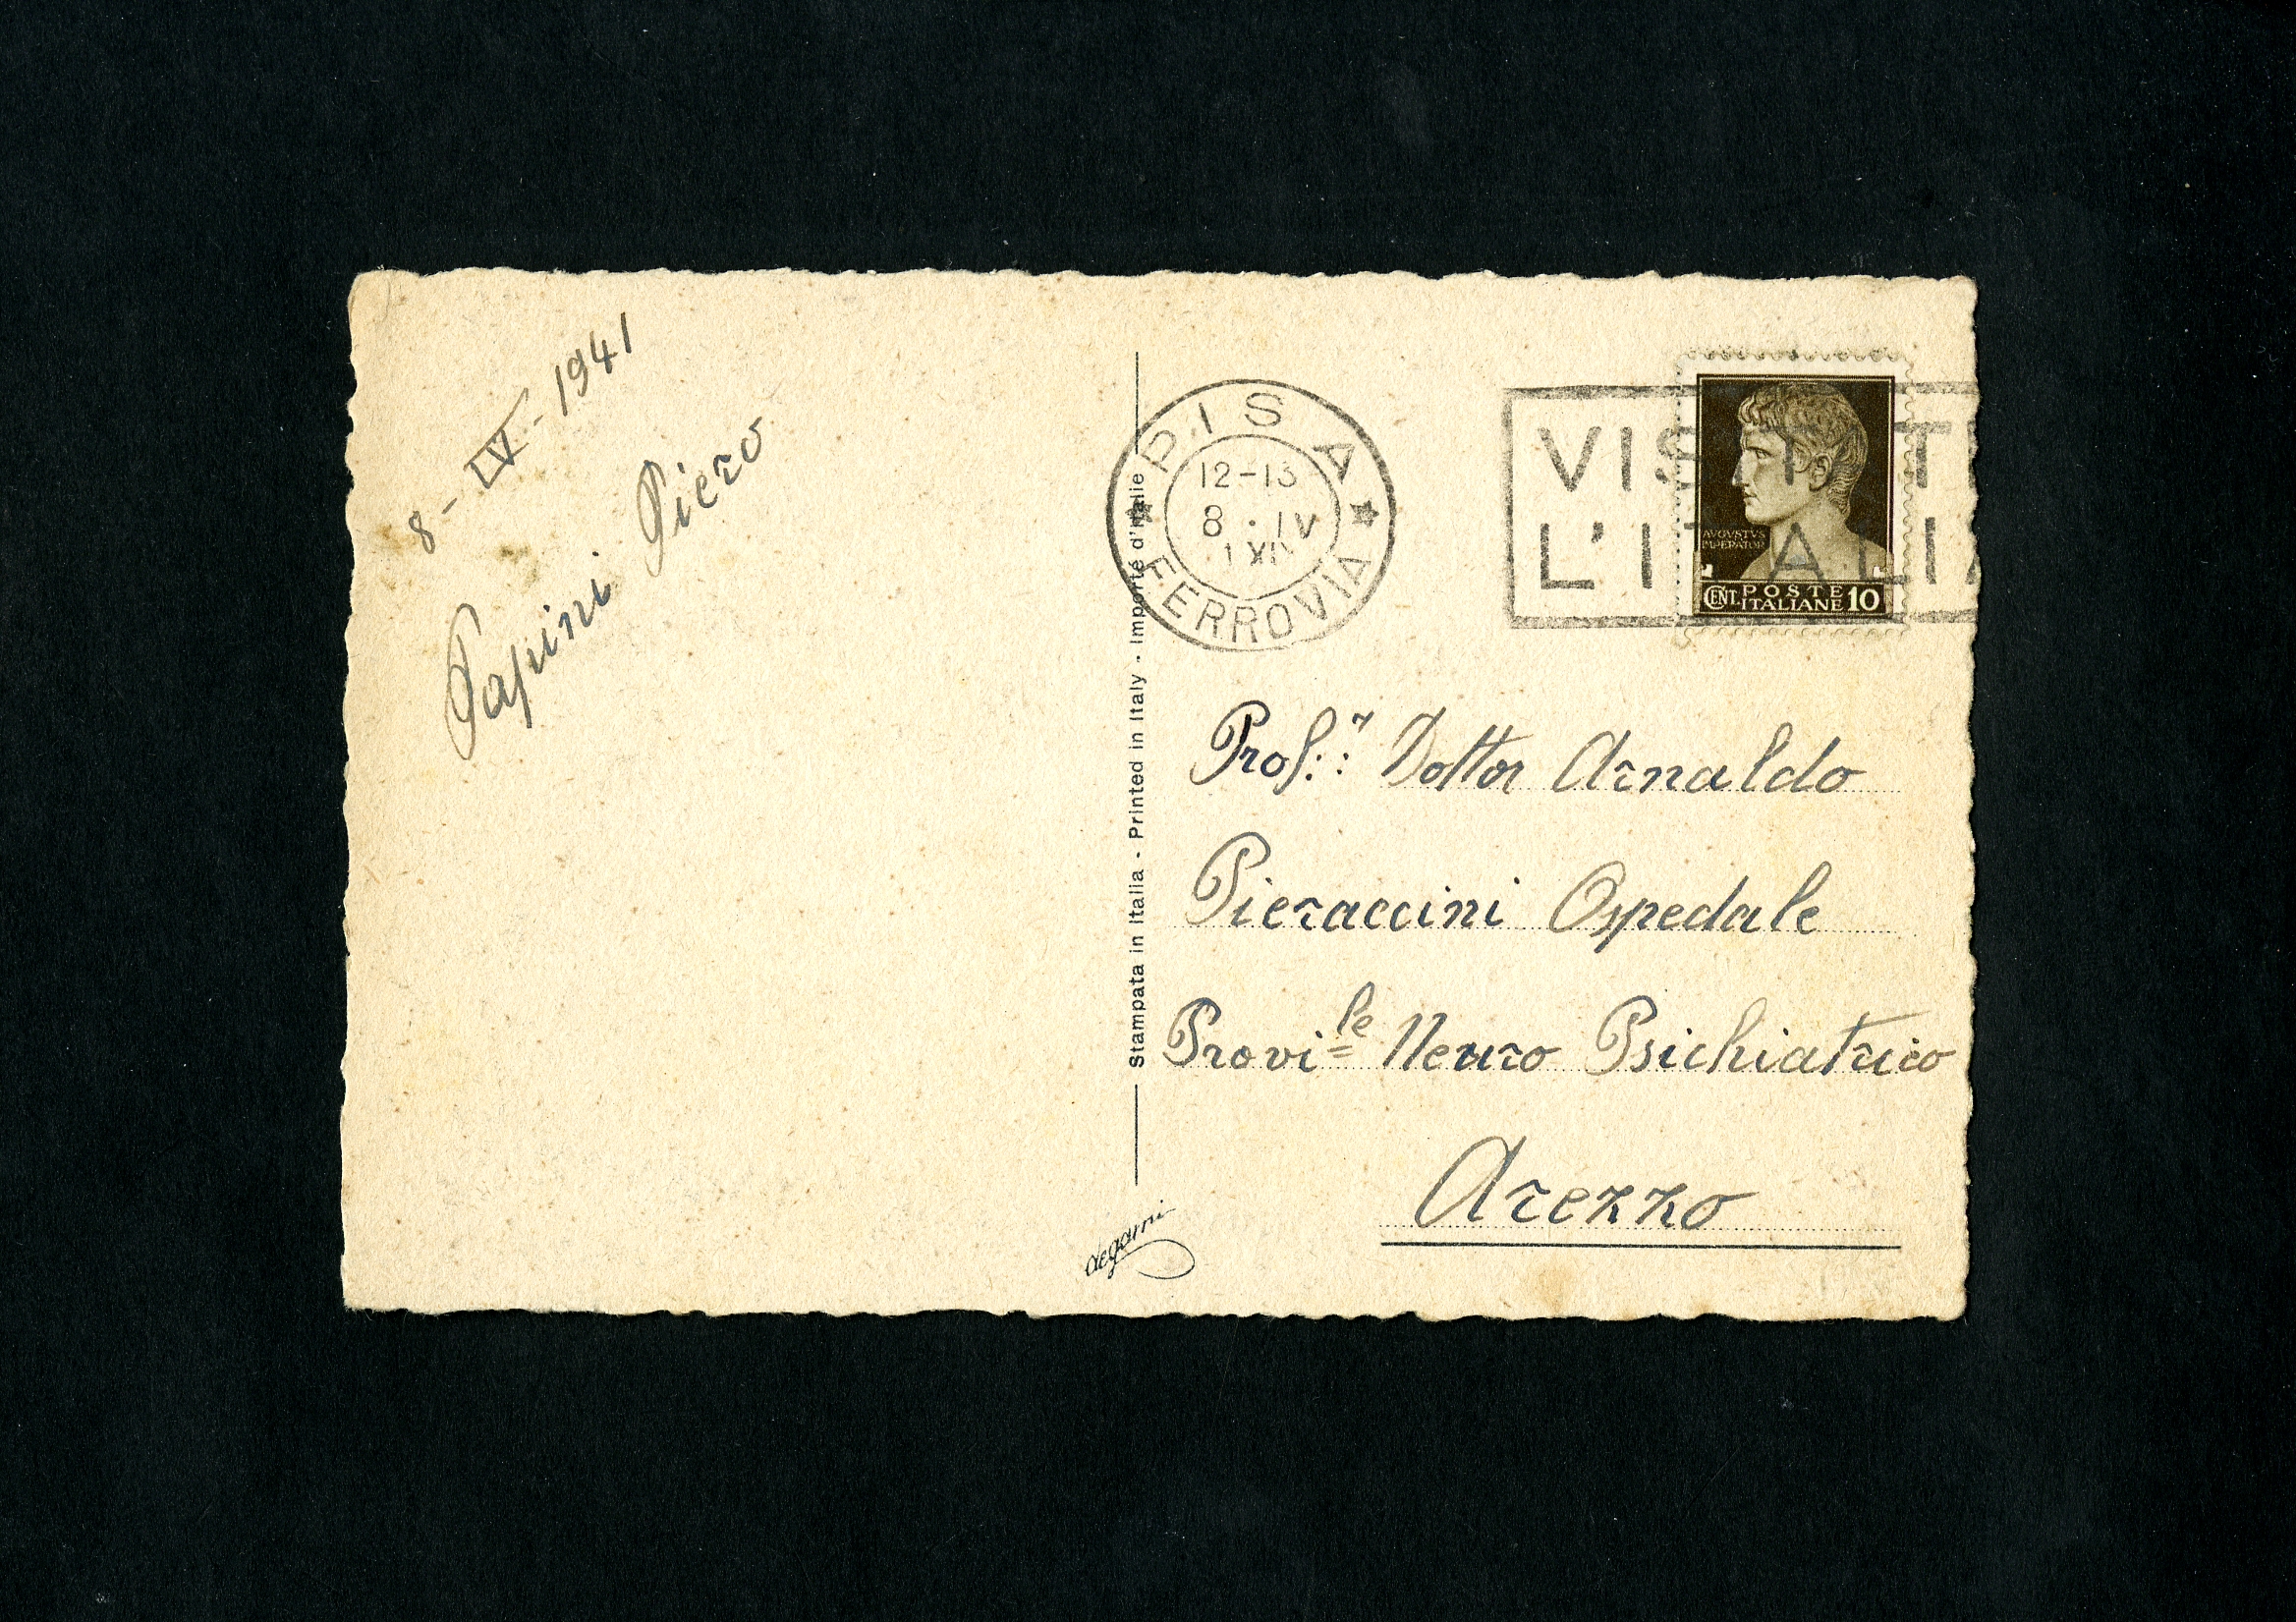 8 - IV - 1941
Papini Piero
Stampata in Italia - Printed in Italy - Importé d'Italie
degami
PISA
12-13
8 · IV
FERROVIA
VISITATE
L'ITALIA
AVGVSTVS
IMPERATOR
CENT. POSTE ITALIANE 10
Prof.r Dottor Arnaldo
Pieraccini Ospedale
Provi.le Neuro Psichiatrico
Arezzo